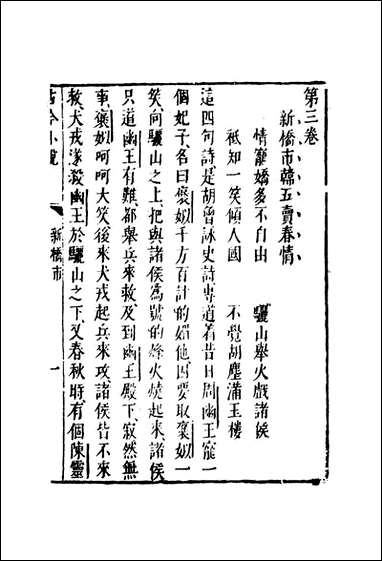 第三卷
新橋市韓五賣春情
情寵嬌多不自由　驪山舉火戲諸侯
秪知一笑傾人國　不覺胡塵滿玉樓
這四句詩是胡曾詠史詩專道着昔日周幽王寵一
個妃子名曰褒姒千方百計的媚他因要取褒姒一
笑向驪山之上把與諸侯為號的烽火燒起來諸侯
只道幽王有難都舉兵來救及到幽王殿下寂然無
事褒姒呵呵大笑後來犬戎起兵來攻諸侯皆不來
救犬戎遂殺幽王於驪山之下又春秋時有個陳靈
古今小說
新橋市
一